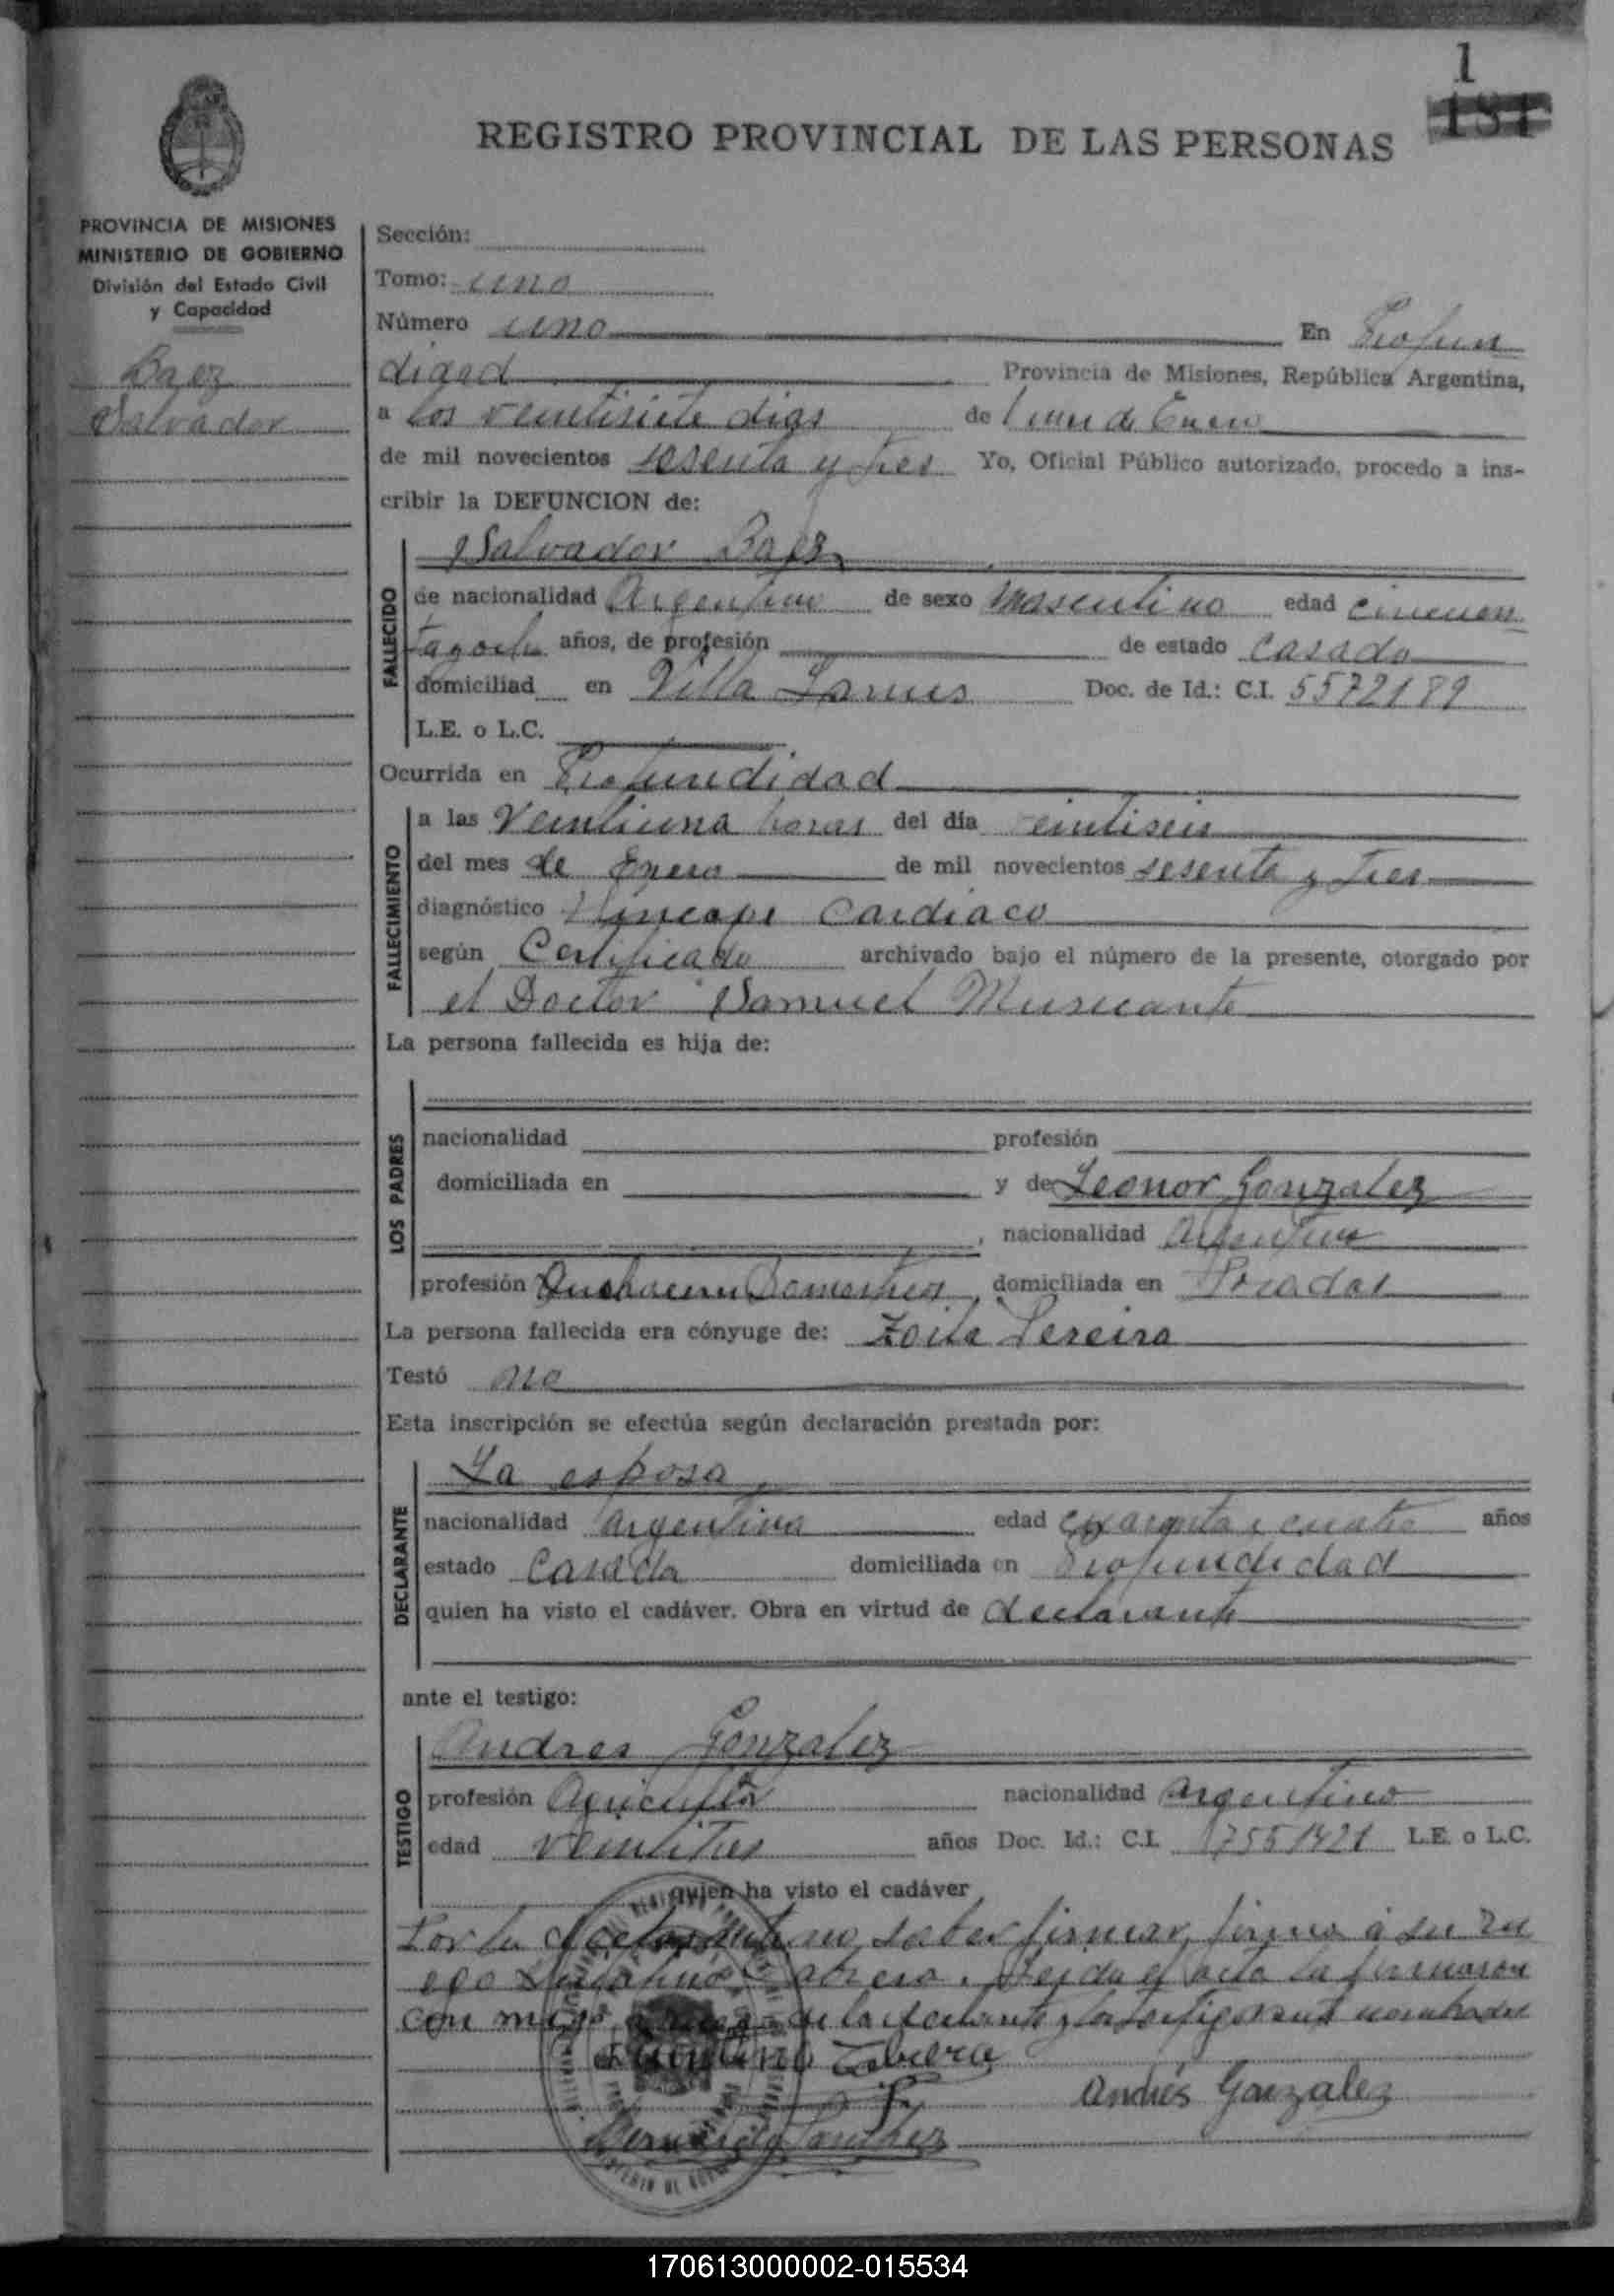 1
181
REGISTRO PROVINCIAL DE LAS PERSONAS
PROVINCIA DE MISIONES
MINISTERIO DE GOBIERNO
División del Estado Civil
y Capacidad
Baez
Salvador
Sección:
Tomo: uno
Número uno En Profun
didad Provincia de Misiones, República Argentina,
a los veintisiete dias de mes de Enero
de mil novecientos sesenta y tres Yo, Oficial Público autorizado, procedo a ins-
cribir la DEFUNCION de:
Salvador Baez
FALLECIDO
de nacionalidad Argentino de sexo Masculino edad cincuen
tayocho años, de profesión de estado Casado
domiciliad en Villa Lanus Doc. de Id.: C.I. 5572189
L.E. o L.C.
Ocurrida en Profundidad
FALLECIMIENTO
a las Veintiuna horas del día veintiseis
del mes de Enero de mil novecientos sesenta y tres
diagnóstico Sincope Cardiaco
según Certificado archivado bajo el número de la presente, otorgado por
el Doctor Samuel Musicante
La persona fallecida es hija de:
LOS PADRES
nacionalidad profesión
domiciliada en y de Leonor Gonzalez
, nacionalidad Argentina
profesión Quehaceres Domesticos, domiciliada en Posadas
La persona fallecida era cónyuge de: Zoila Pereira
Testó no
Esta inscripción se efectúa según declaración prestada por:
La esposa
DECLARANTE
nacionalidad argentina edad cuarenta y cuatro años
estado Casada domiciliada en Profundidad
quien ha visto el cadáver. Obra en virtud de declarante
ante el testigo:
Andres Gonzalez
TESTIGO
profesión Agricultor nacionalidad argentino
edad veintitres años Doc. Id.: C.I. 7551421 L.E. o L.C.
quien ha visto el cadáver
Por la declarante no saber firmar, firma á su ru
ego Cabrera. Leida el acta la firmaron
con migo de la declarante y los testigos nombrados
Cabrera
Andrés Gonzalez
Sanchez
170613000002-015534